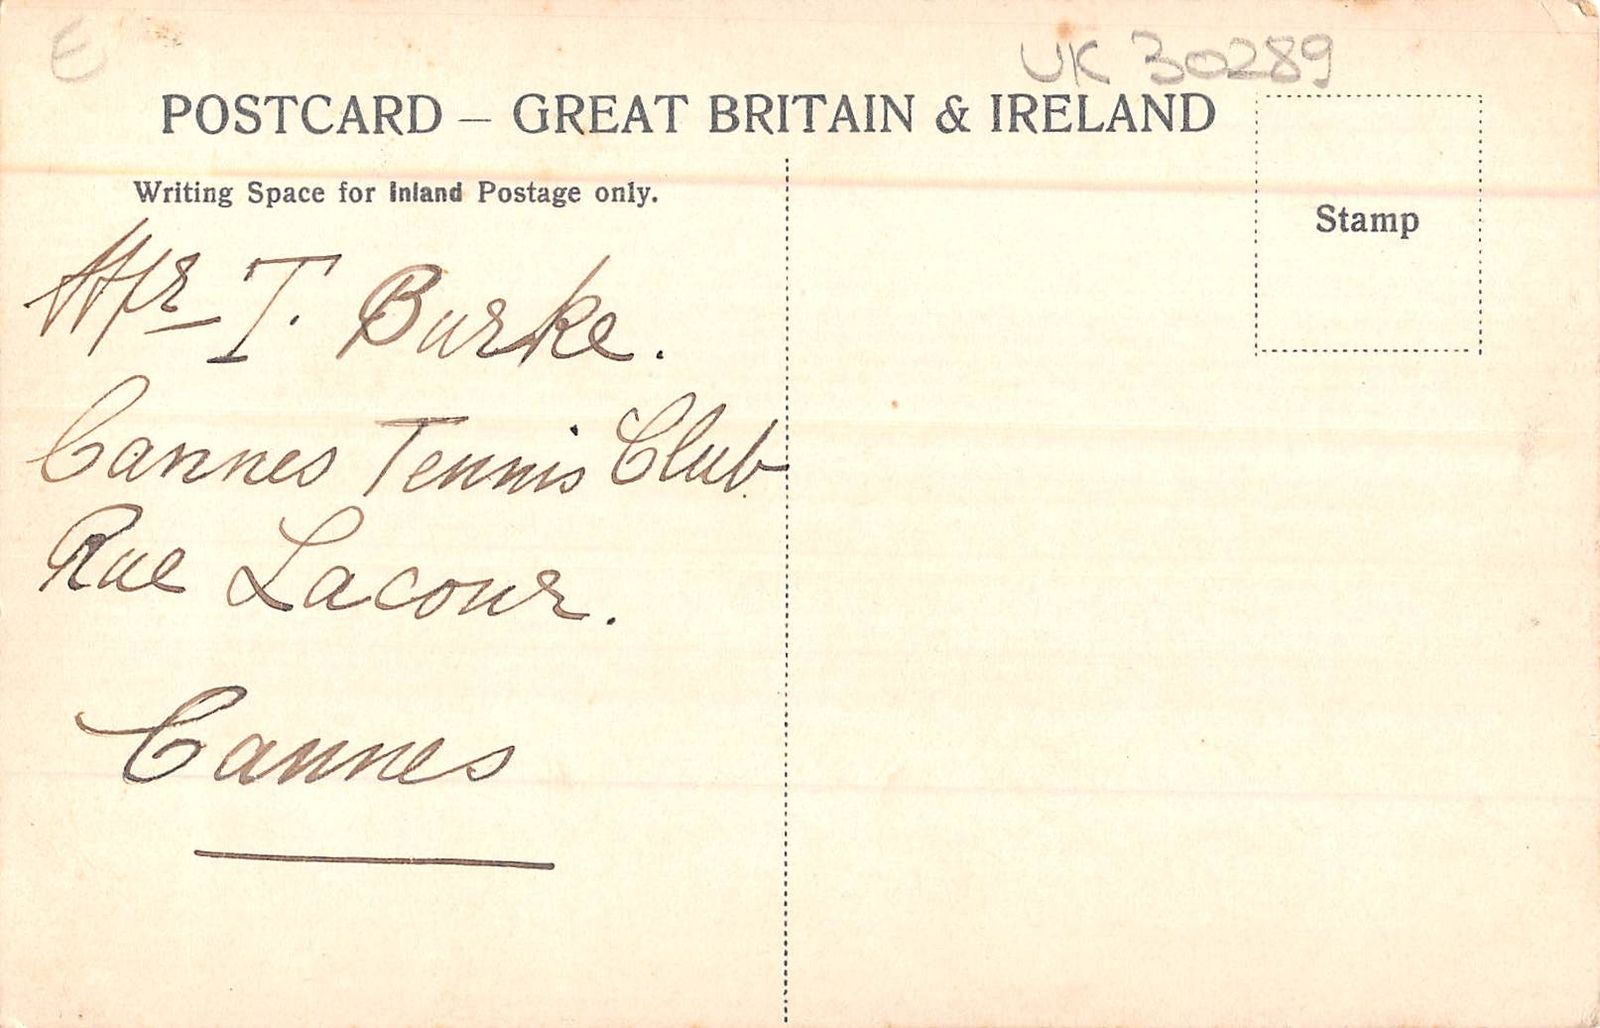 E
UK 30289
POSTCARD – GREAT BRITAIN & IRELAND
Writing Space for Inland Postage only.
Stamp
Mr T. Burke.
Cannes Tennis Club
Rue Lacour.
Cannes